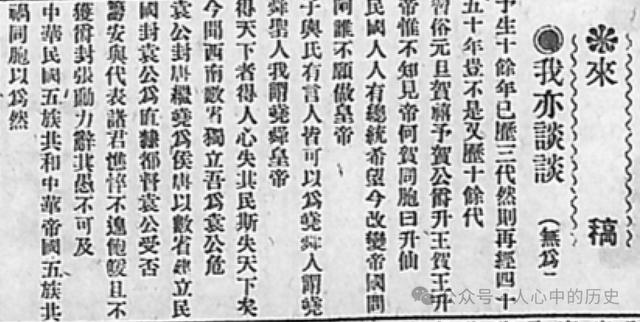 來稿
我亦談談 (無為)
予生十餘年已歷三代然則再經四十
五十年豈不是又歷十餘代
習俗元旦賀禧予賀公爵升王賀王升
帝惟不知見帝何賀同胞曰升仙
民國人人有總統希望今改變帝國問
阿誰不願做皇帝
子輿氏有言人皆可以為堯舜人謂堯
舜聖人我謂堯舜皇帝
得天下者得人心失其民斯失天下矣
今聞西南數省獨立吾為袁公危
袁公封唐繼堯為侯唐以數省建立民
國封袁公為直隸都督袁公受否
籌安與代表諸君憔悴不遑飽煖且不
獲銜封張動力辭其愚不可及
中華民國五族共和中華帝國五族共
禍同胞以為然
公众号·人心中的历史